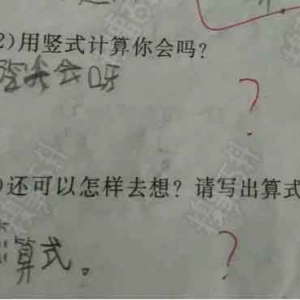 2)用竖式计算你会吗?
会呀
?
)还可以怎样去想?请写出算式
算式。
?